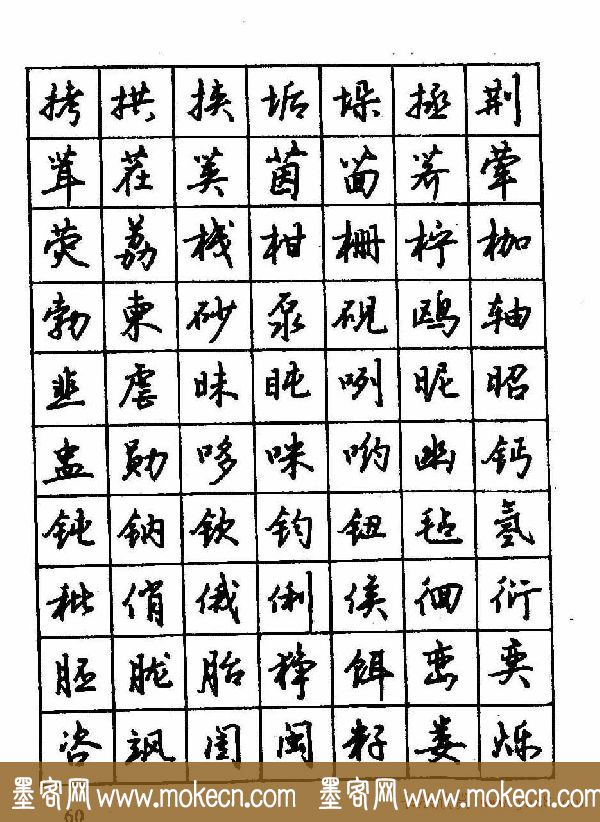 拷拱挟垢垛拯荆
茸茬荚茵茴荞荤
荧荔栈柑栅柠枷
勃柬砂泵砚鸥轴
韭虐昧盹咧昵昭
盅勋哆咪哟幽钙
钝钠钦钧钮毡氢
秕俏俄俐侯徊衍
胚胧胎狰饵峦奕
咨飒闺闽籽娄烁
墨客网 www.mokecn.com 墨客网 www.mokecn.com
60